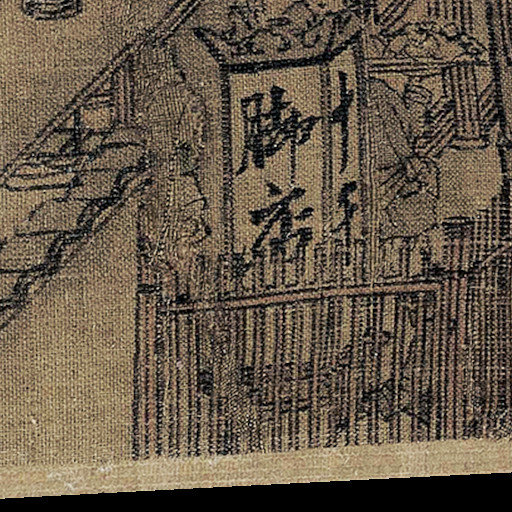 十千
脚店